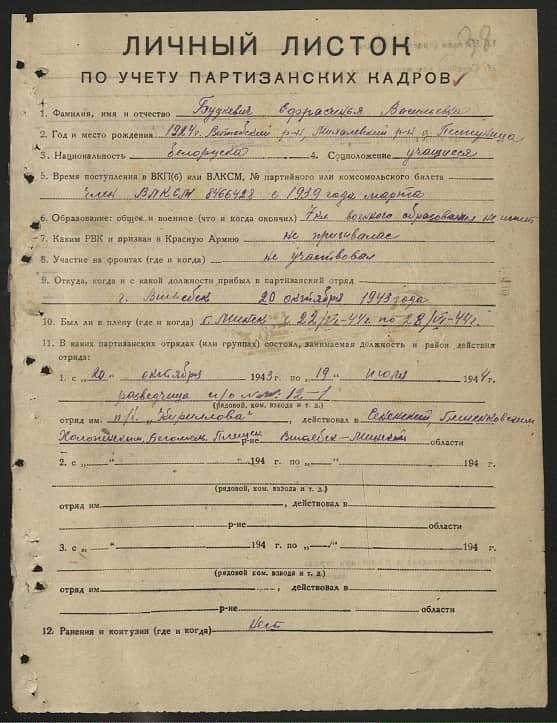 ЛИЧНЫЙ ЛИСТОК
ПО УЧЕТУ ПАРТИЗАНСКИХ КАДРОВ
1. Фамилия, имя и отчество Будкевич Васильевна
2. Год и место рождения 1924 г. Витебский р-н, р-н д.
3. Национальность белоруска 4. Соцположение учащиеся
5. Время поступления в ВКП(б) или ВЛКСМ, № партийного или комсомольского билета
член ВЛКСМ 8466428 с 1939 года марта
6. Образование: общее и военное (что и когда окончил) 7 кл. военного образования не имеет
7. Каким РВК и призван в Красную Армию не призивалас
8. Участие на фронтах (где и когда) не участвовал
9. Откуда, когда и с какой должности прибыл в партизанский отряд
г. Витебск 20 октября 1943 года
10. Был ли в плену (где и когда) г. Минск с 22/VI-44г. по 28/VI-44г.
11. В каких партизанских отрядах (или группах) состоял, занимаемая должность и район действия
отряда:
1. с „20" октября 1943 г. по „19" июля 1944 г.
разведчица 12-1
(рядовой, ком. взвода и т. д.)
отряд им. п/о „Кириллова", действовал в Сененский,
Холопиничск, Бегомль, Плещен р-не Вилейск-Минской области
2. с „ " 194 г. по „ " 194 г.
(рядовой, ком. взвода и т. д.)
отряд им. , действовал в
р-не области
3. с „ " 194 г. по „ " 194 г.
(рядовой, ком. взвода и т. д.)
отряд им. , действовал в
р-не области
12. Ранения и контузии (где и когда) Нет